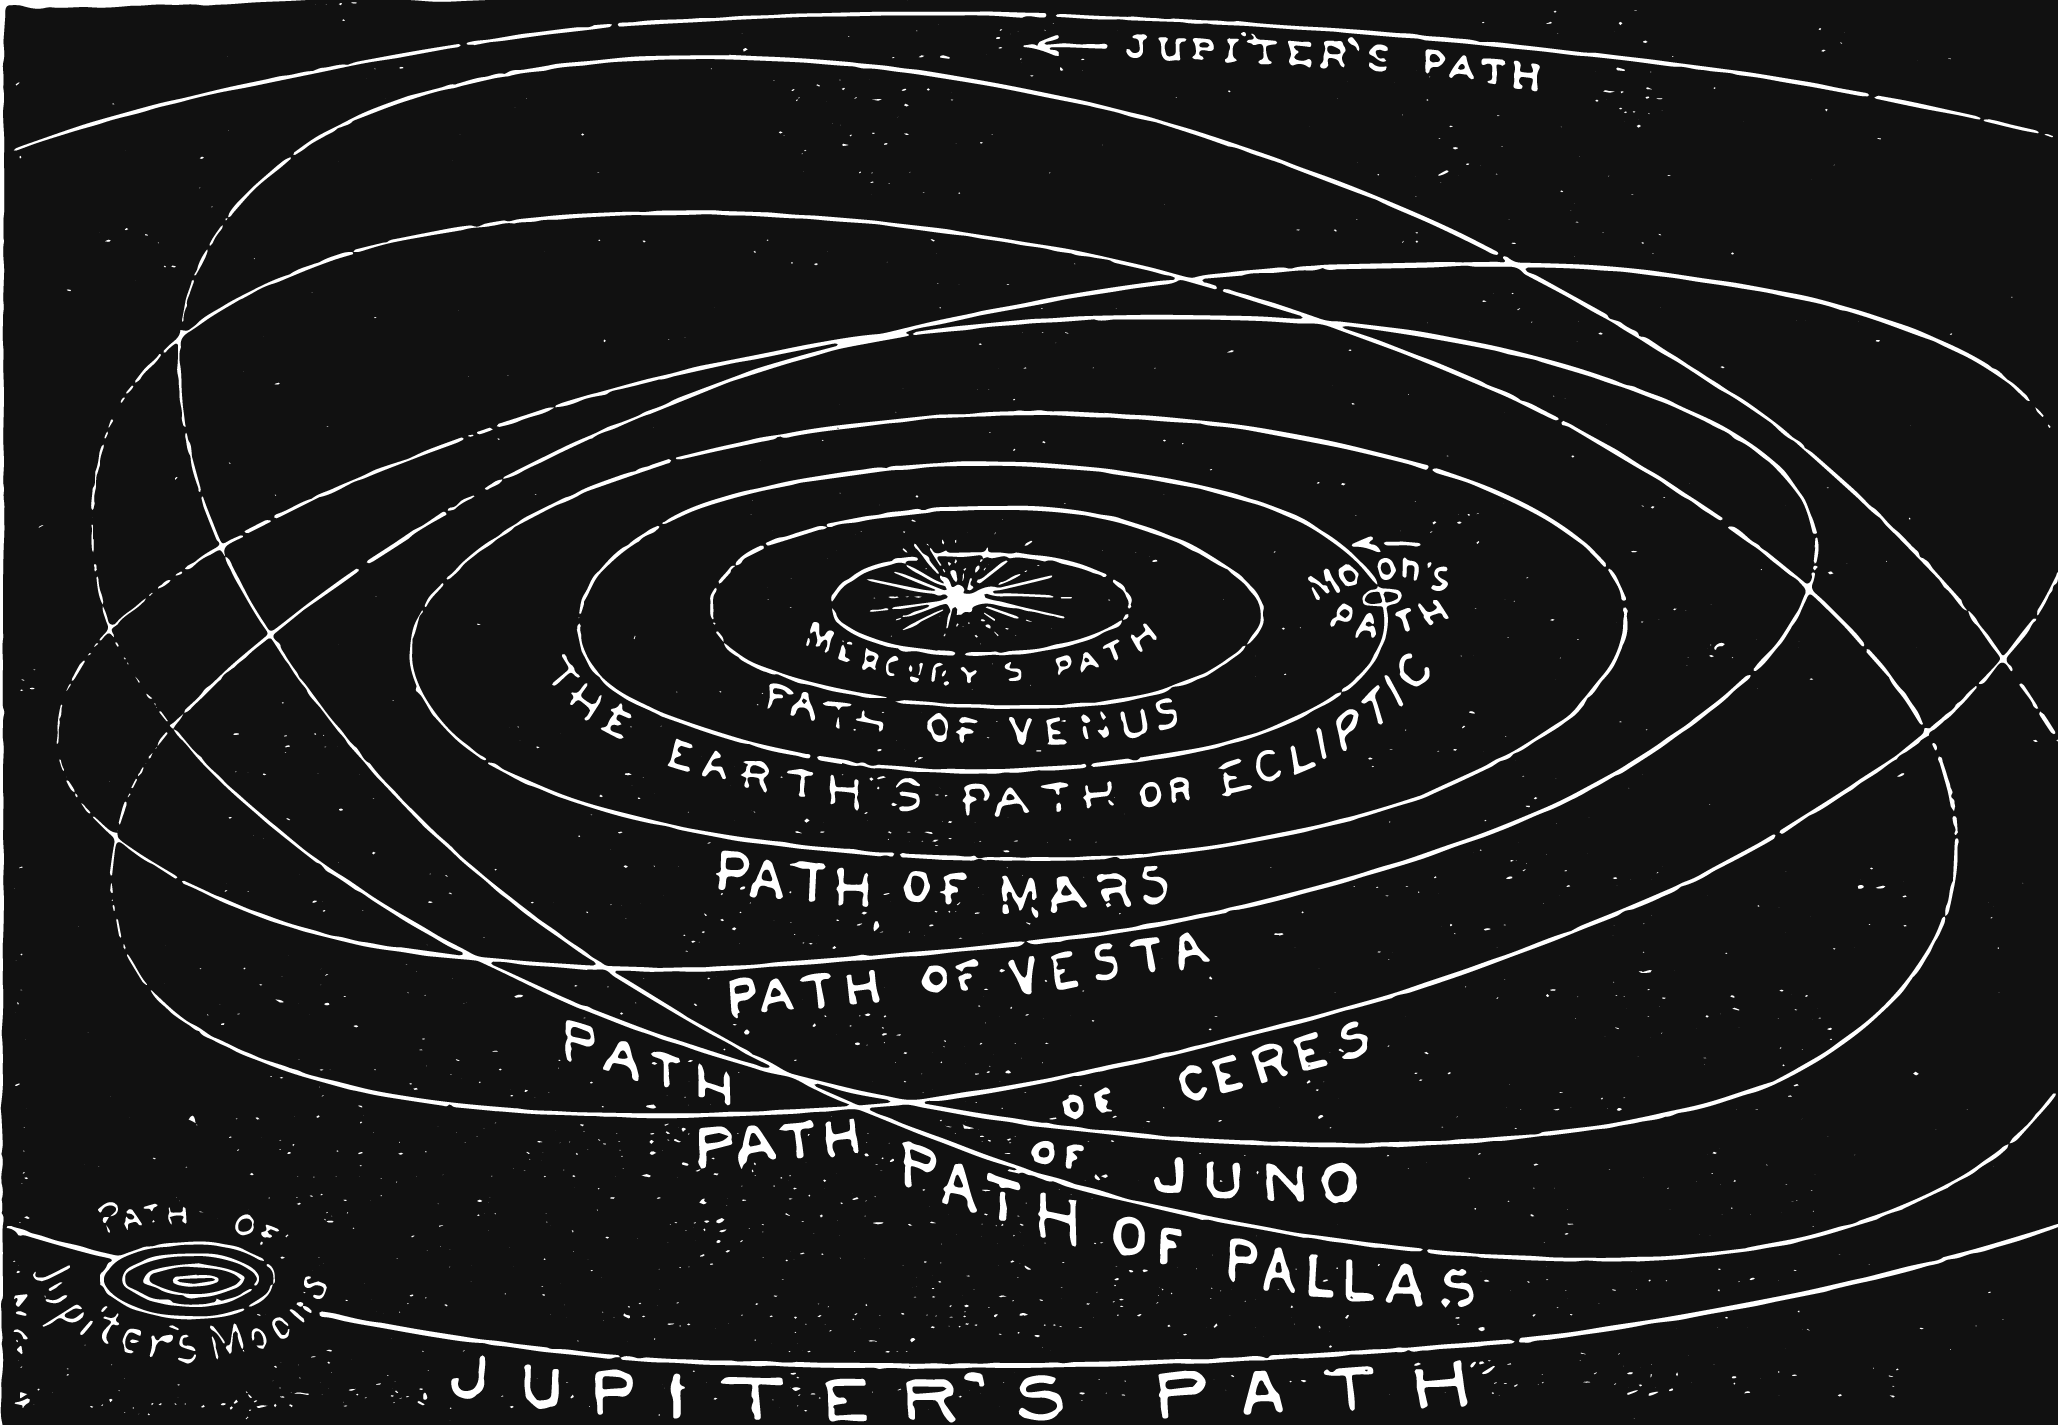 JUPITER'S PATH
MOON'S
PATH
MERCURY'S PATH
PATH OF VENUS
THE EARTH'S PATH OR ECLIPTIC
PATH OF MARS
PATH OF VESTA
PATH OF CERES
PATH OF JUNO
PATH OF PALLAS
PATH OF
Jupiter's Moons
JUPITER'S PATH